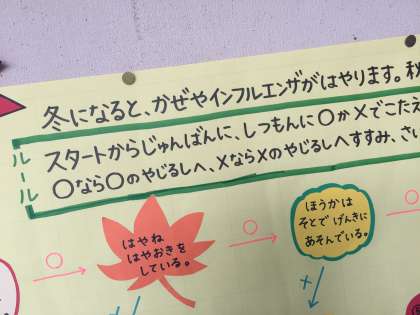 冬になると、かぜやインフルエンザがはやります。秋
ルール
スタートからじゅんばんに、しつもんに〇か×でこたえ
〇なら〇のやじるしへ、×なら×のやじるしへすすみ、さい
はやね
はやおきを
している。
〇
ほうかは
そとで げんきに
あそんでいる。
〇
〇
×
×